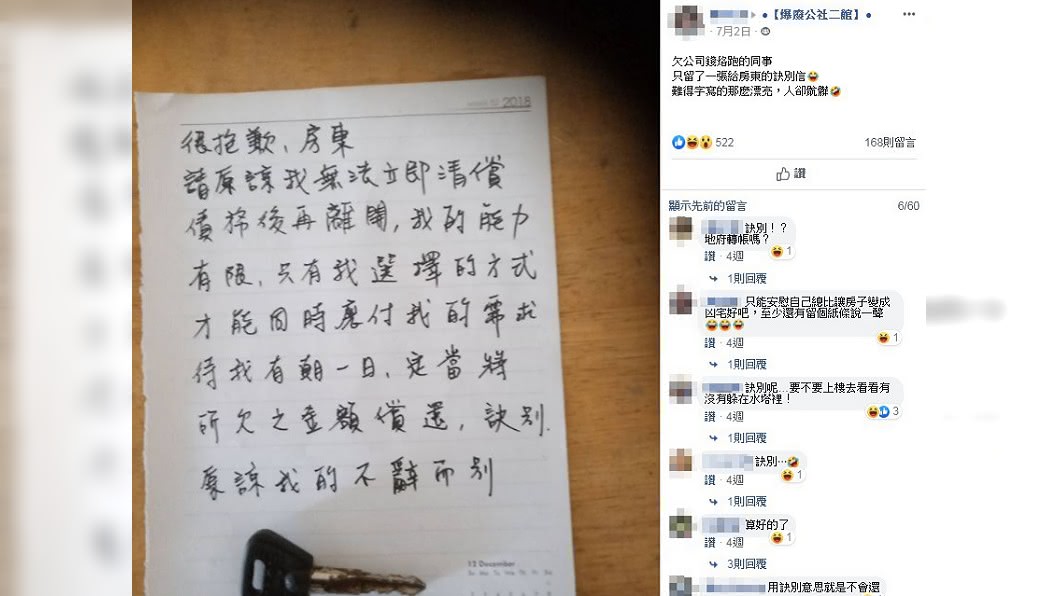 2018
很抱歉、房東
請原諒我無法立即清償
債務後再離開,我的能力
有限,只有我選擇的方式
才能同時應付我的需求
待我有朝一日、定當將
所欠之金額償還,訣別.
原諒我的不辭而別
12 December
【爆廢公社二館】
7月2日
欠公司錢烙跑的同事
只留了一張給房東的訣別信
難得字寫的那麼漂亮,人卻骯髒
522
168則留言
讚
顯示先前的留言
6/60
訣別!?
地府轉帳嗎?
1
讚 · 4週
1則回覆
只能安慰自己總比讓房子變成
凶宅好吧,至少還有留個紙條說一聲
1
讚 · 4週
1則回覆
訣別呢...要不要上樓去看看有
沒有躲在水塔裡!
3
讚 · 4週
1則回覆
訣別…
1
讚 · 4週
1則回覆
算好的了
1
讚 · 4週
3則回覆
用訣別意思就是不會還